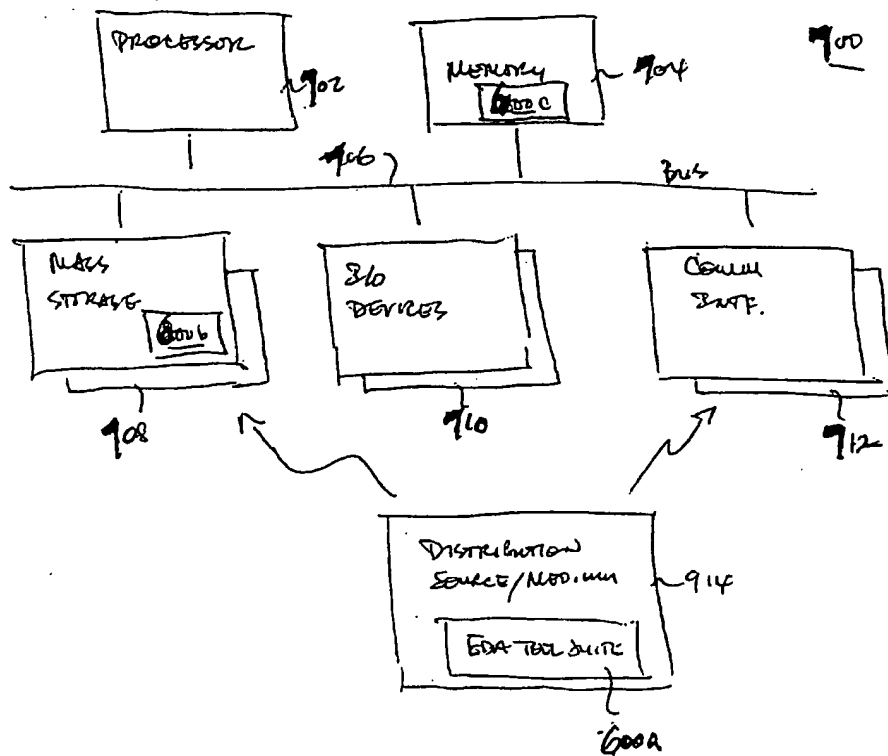 PROCESSOR
902
MEMORY
600c
904
900
906
BUS
MASS
STORAGE
600b
908
I/O
DEVICES
910
COMM
INTF.
912
DISTRIBUTION
SOURCE/MEDIUM
914
EDA TOOL SUITE
600a